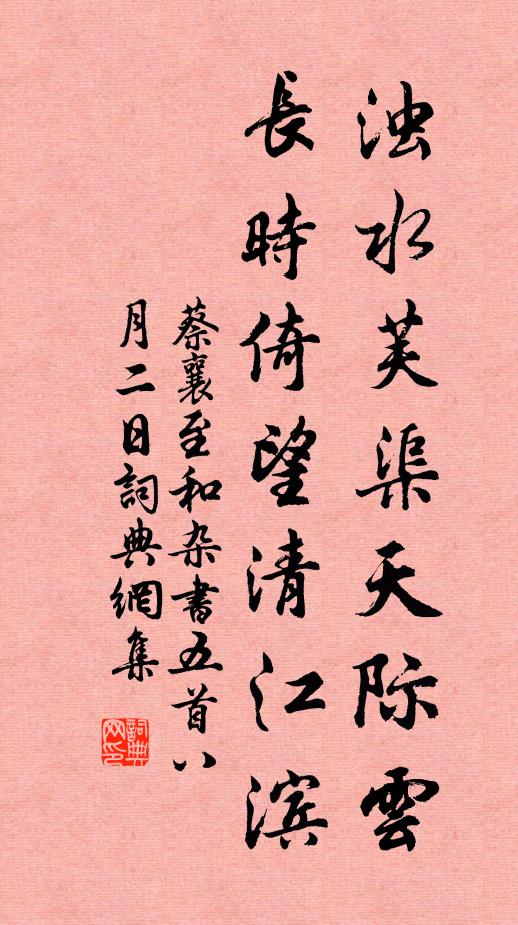 浊水芙渠天际雲
長時倚望清江滨
蔡襄至和杂書五首八
月二日詞典網集
詞典
网印